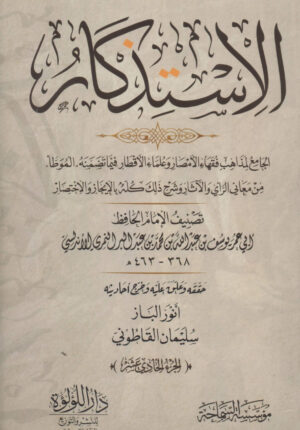 الاستذكار
الجامع لمذاهب فقهاء الأمصار وعلماء الأقطار فيما تضمنه الموطأ.
من معاني الرأي والآثار وشرح ذلك كله بالإيجاز والاختصار
تصنيف الإمام الحافظ
أبي عمر يوسف بن عبد الله بن محمد بن عبد البر النمري الأندلسي
٣٦٨ - ٤٦٣ هـ
حققه وعلق عليه وخرج أحاديثه
أنور الباز
سليمان القاطوني
الجزء الحادي عشر
مؤسسة التفاحة
دار اللؤلؤة
للنشر والتوزيع